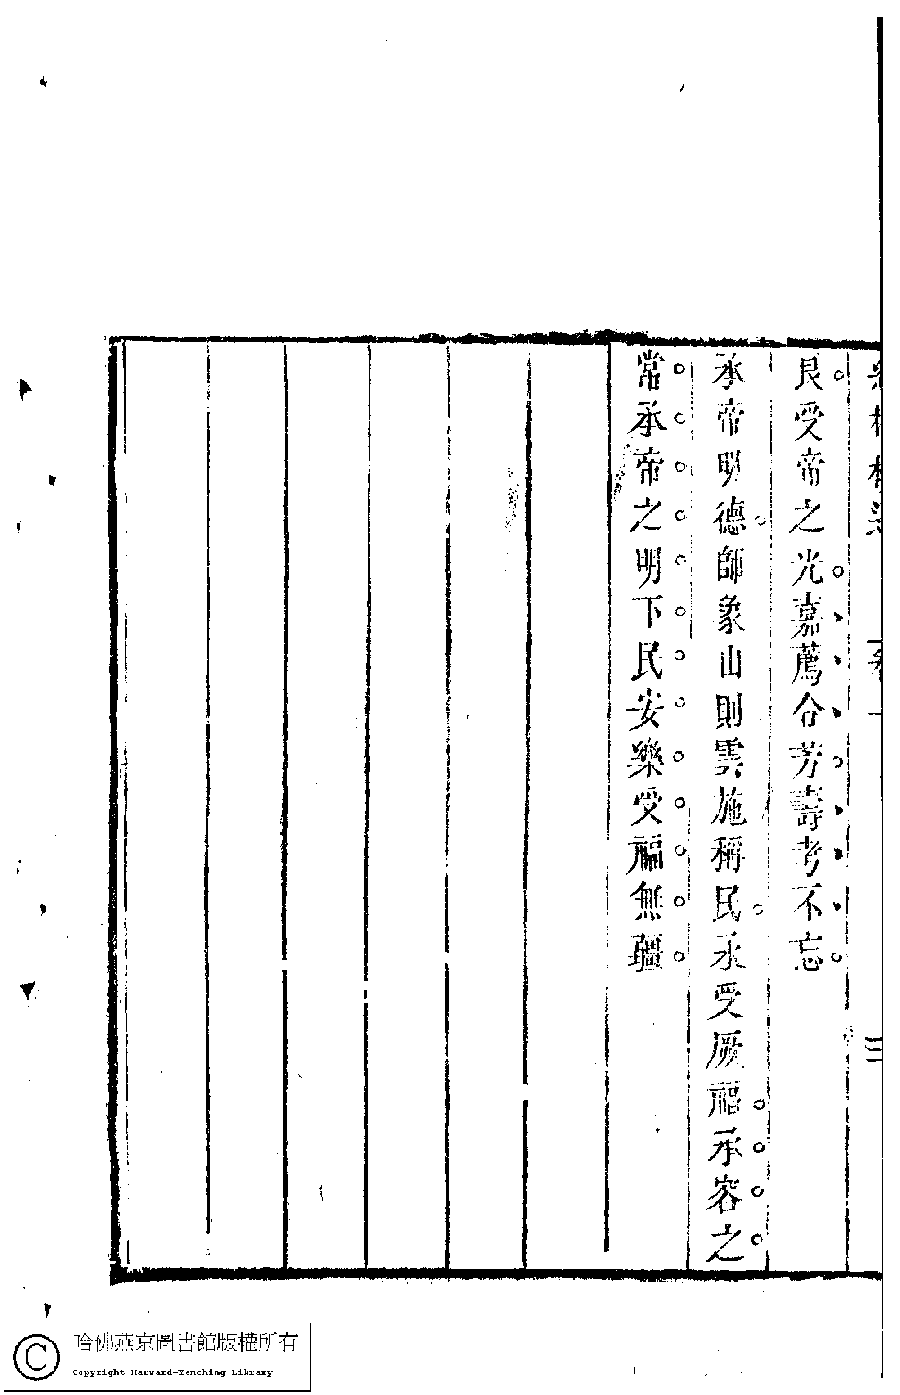 良受帝之光嘉薦令芳壽考不忘
承帝明德師象山則雲施稱民永受厥福承容之
常承帝之明下民安樂受福無疆
哈佛燕京圖書館版權所有
Copyright Harvard-Yenching Library